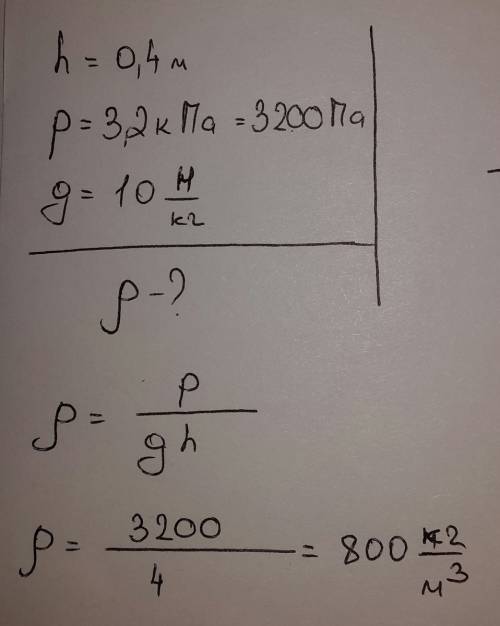 h = 0,4 м
p = 3,2 кПа = 3200 Па
g = 10 Н/кг
ρ - ?
ρ = p/gh
ρ = 3200/4 = 800 кг/м³